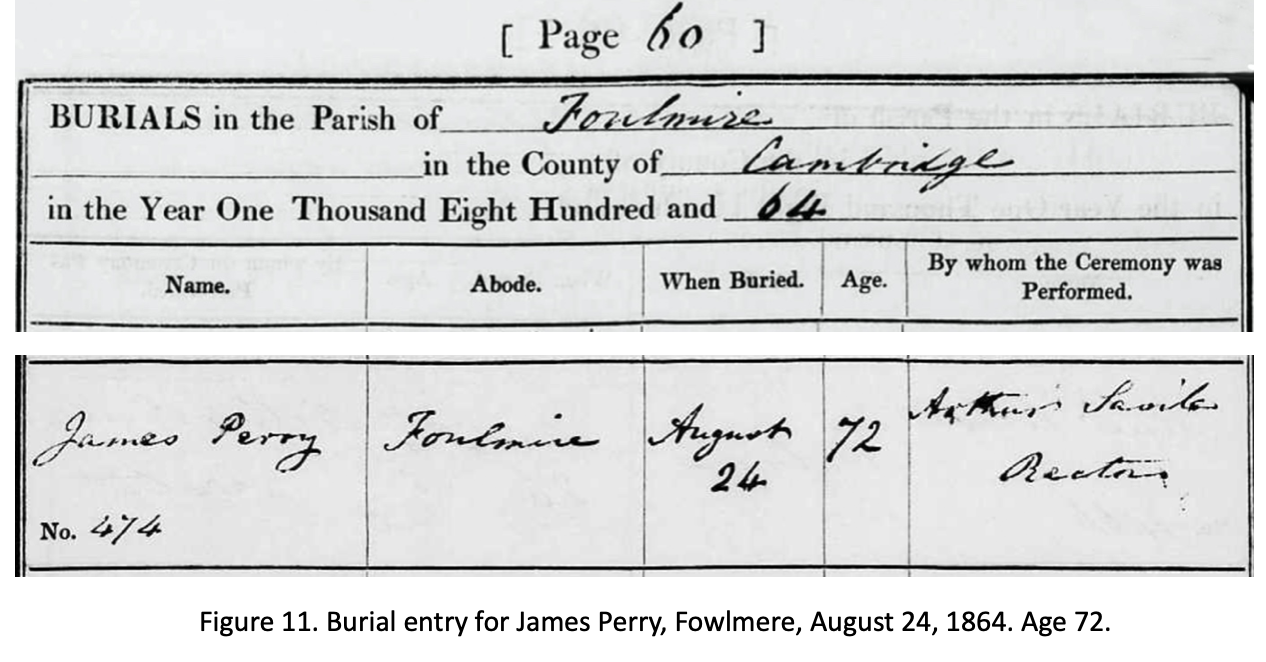 [ Page 60 ]
BURIALS in the Parish of Foulmire
in the County of Cambridge
in the Year One Thousand Eight Hundred and 64
Name. Abode. When Buried. Age. By whom the Ceremony was Performed.
James Perry Foulmire August 24 72 Arthur Savile Rector
No. 474
Figure 11. Burial entry for James Perry, Fowlmere, August 24, 1864. Age 72.